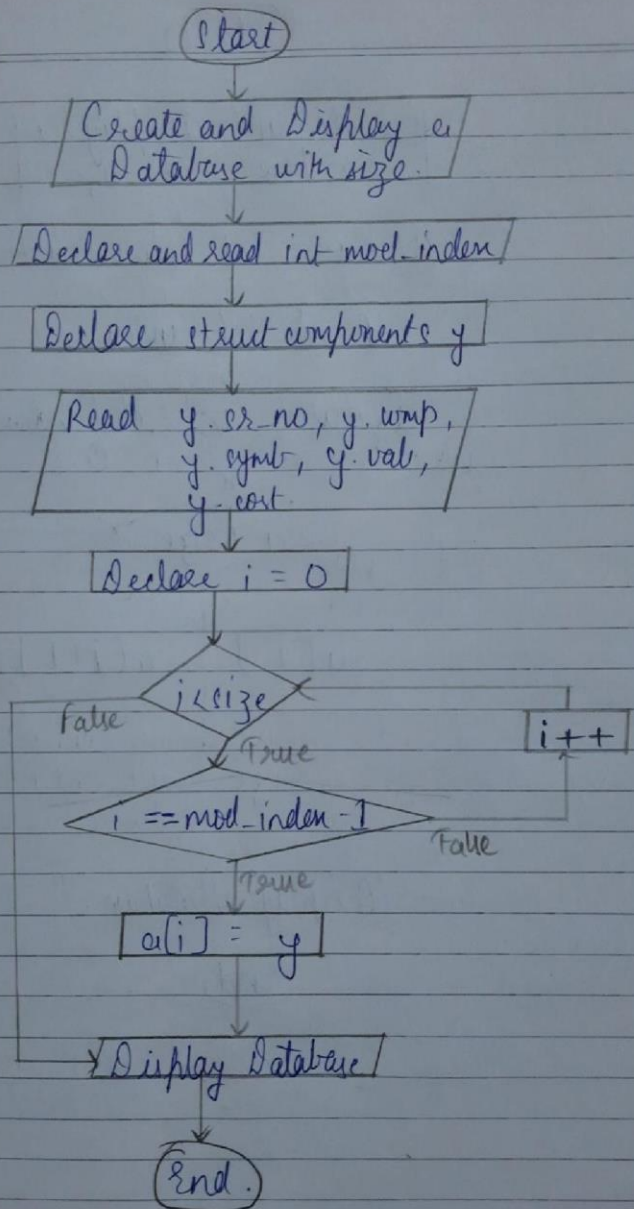 Start
Create and Display a
Database with size.
Declare and read int mod_index
Declare struct components y
Read y.sr_no, y.comp,
y.symb, y.val,
y.cost.
Declare i = 0
i<size
False
True
i++
i ==mod_index-1
False
True
a[i] = y
Display Database
End.